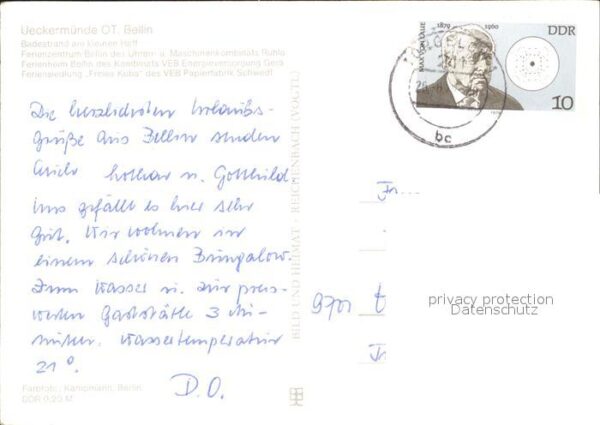 Ueckermünde OT. Bellin
Badestrand am kleinen Haff
Ferienzentrum Bellin des Uhren- u. Maschinenkombinats Ruhla
Ferienheim Bellin des Kombinats VEB Energieversorgung Gera
Feriensiedlung „Freies Kuba" des VEB Papierfabrik Schwedt
Die herzlichsten Urlaubs-
grüße aus Bellin senden
Euch Lothar u. Gotthild
Uns gefällt es hier sehr
gut. Wir wohnen in
einem schönen Bungalow.
Zum Wasser u. zur preis-
werten Gaststätte 3 Mi-
nuten. Wassertemperatur
21°.
D.O.
Farbfoto: Kampmann, Berlin
DDR 0,20 M
BILD UND HEIMAT · REICHENBACH (VOGTL)
MAX VON LAUE
1879 1960
DDR
10
bc
9701
privacy protection
Datenschutz